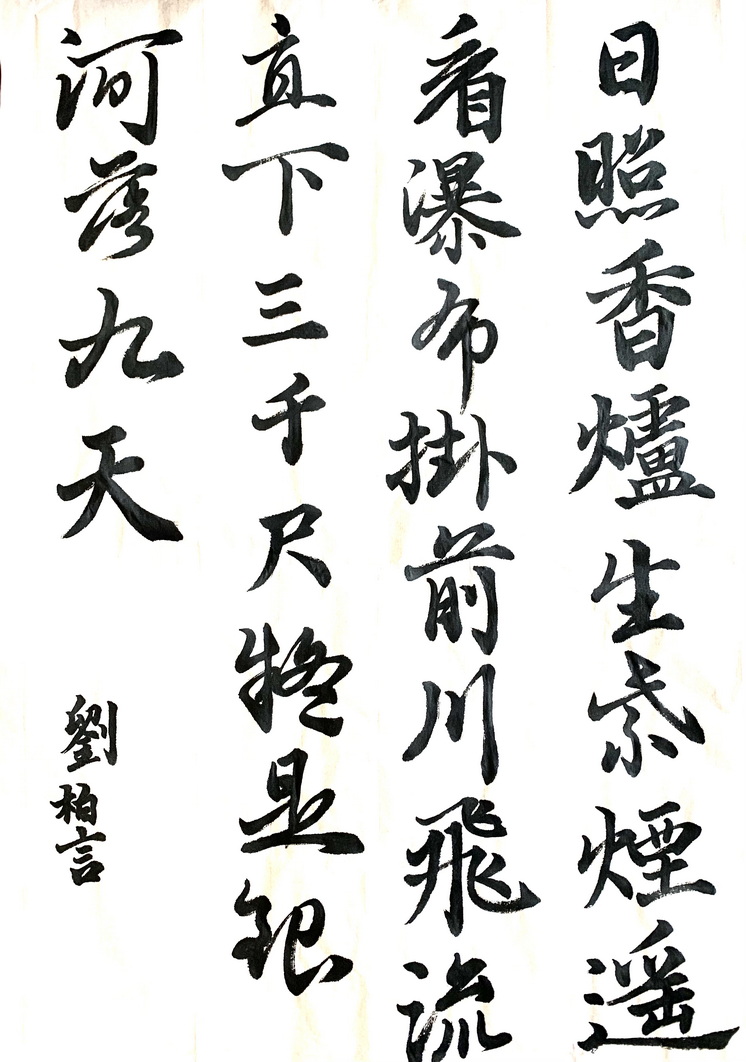 日照香爐生紫煙遥
看瀑布掛前川飛流
直下三千尺疑是銀
河落九天
劉柏言